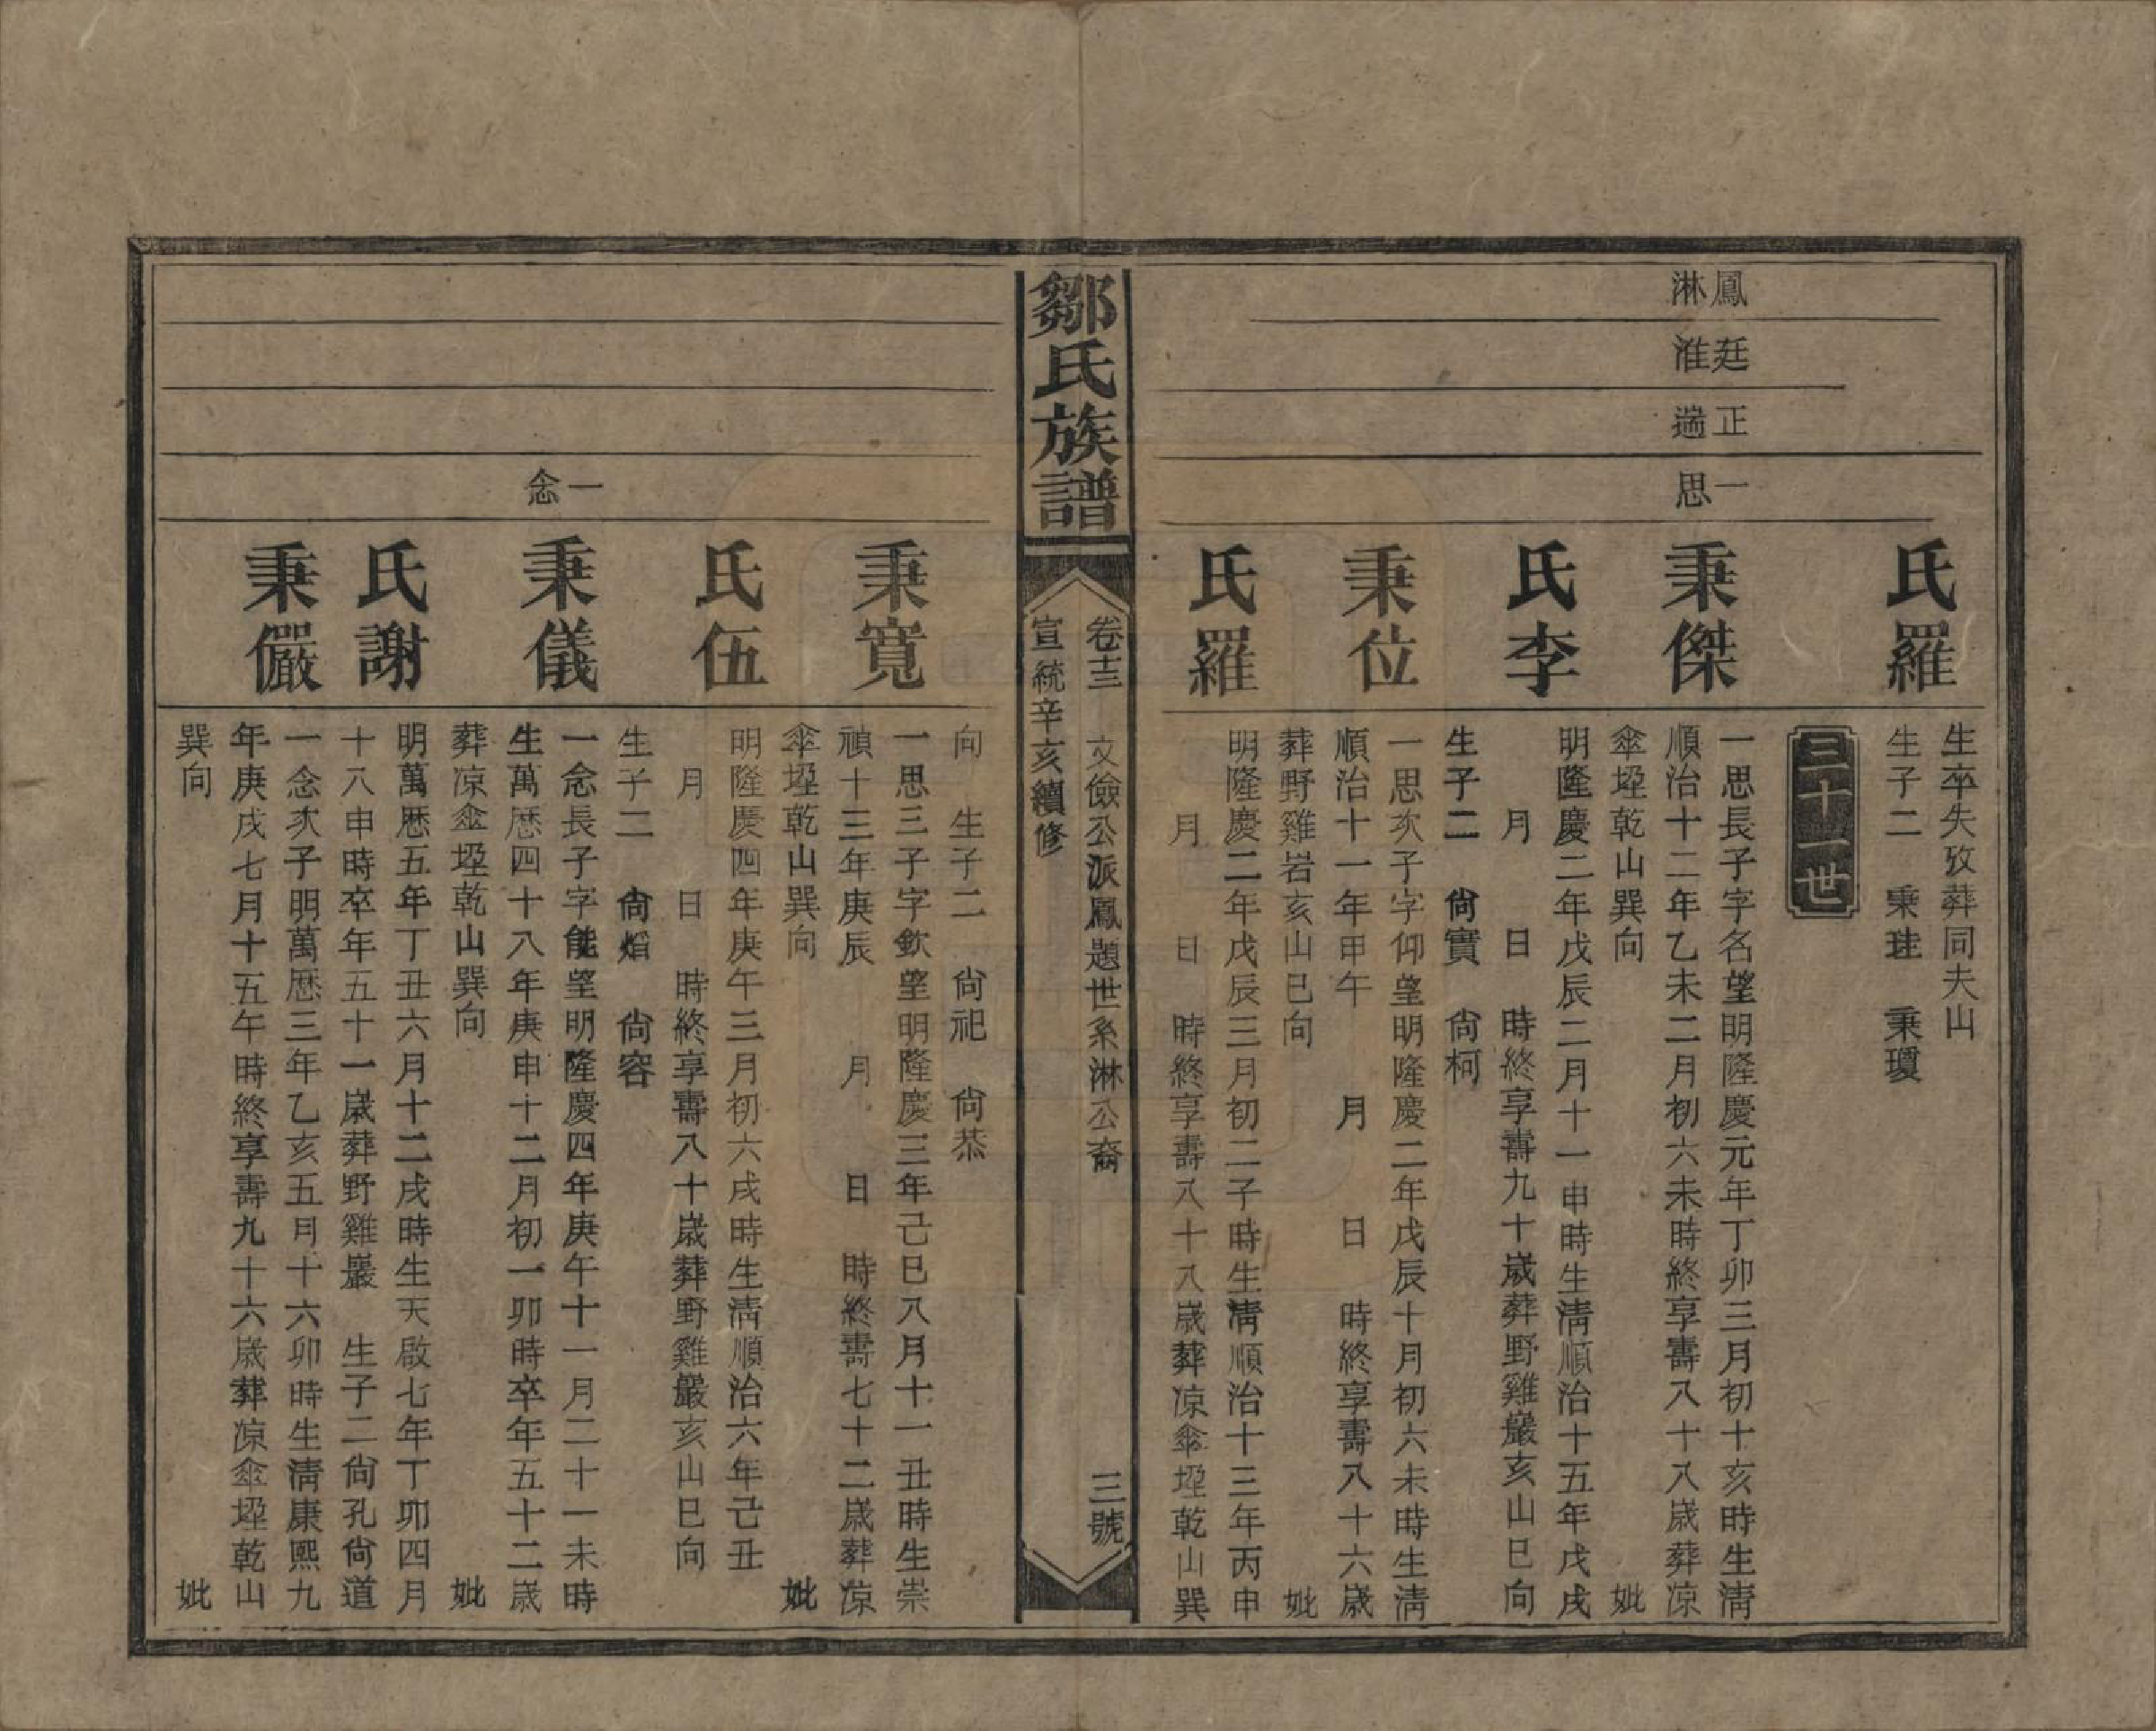 鳳淋
廷淮
正遄
一思
氏羅
生卒失攷葬同夫山
生子二　秉珪　秉瓊
三十一世
秉傑
一思長子字名望明隆慶元年丁卯三月初十亥時生淸
順治十二年乙未二月初六未時終享壽八十八歲葬凉
傘埕乾山巽向　妣
氏李
明隆慶二年戊辰二月十一申時生淸順治十五年戊戌
月　日　時終享壽九十歲葬野雞巖亥山巳向
生子二　尙實　尙柯
秉位
一思次子字仰望明隆慶二年戊辰十月初六未時生淸
順治十一年甲午　月　日　時終享壽八十六歲
葬野雞岩亥山巳向　妣
氏羅
明隆慶二年戊辰三月初二子時生淸順治十三年丙申
月　日　時終享壽八十八歲葬凉傘埕乾山巽
鄒氏族譜
卷十三　文儉公派鳳題世系淋公裔　三號
宣統辛亥續修
向　生子二　尙祀　尙恭
秉寬
一思三子字欽望明隆慶三年己巳八月十一丑時生崇
禎十三年庚辰　月　日　時終壽七十二歲葬凉
傘埕乾山巽向　妣
氏伍
明隆慶四年庚午三月初六戌時生淸順治六年己丑
月　日　時終享壽八十歲葬野雞巖亥山巳向
生子二　尙焰　尙容
一念
秉儀
一念長子字能望明隆慶四年庚午十一月二十一未時
生萬厯四十八年庚申十二月初一卯時卒年五十二歲
葬凉傘埕乾山巽向　妣
氏謝
明萬厯五年丁丑六月十二戌時生天啟七年丁卯四月
十八申時卒年五十一歲葬野雞巖　生子二尙孔尙道
秉儼
一念次子明萬厯三年乙亥五月十六卯時生淸康熙九
年庚戌七月十五午時終享壽九十六歲葬凉傘埕乾山
巽向　妣